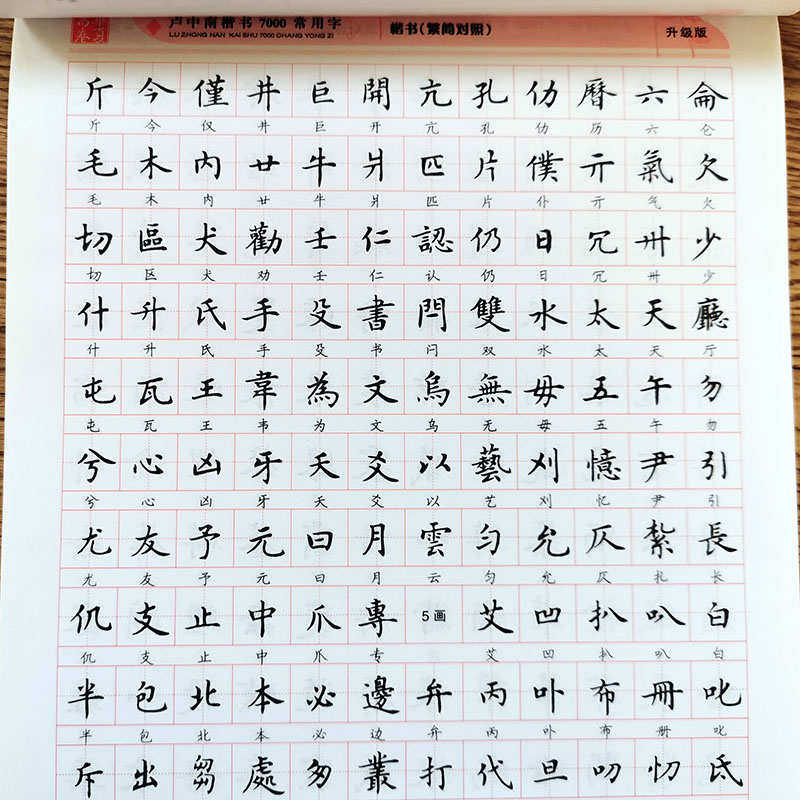 卢中南楷书7000常用字
LU ZHONG NAN KAI SHU 7000 CHANG YONG ZI
楷书(繁简对照)
升级版
斤 今 僅 井 巨 開 亢 孔 仂 曆 六 侖
斤 今 仅 井 巨 开 亢 孔 仂 历 六 仑
毛 木 内 廿 牛 爿 匹 片 僕 亓 氣 欠
毛 木 内 廿 牛 爿 匹 片 仆 亓 气 欠
切 區 犬 勸 壬 仁 認 仍 日 冗 卅 少
切 区 犬 劝 壬 仁 认 仍 日 冗 卅 少
什 升 氏 手 殳 書 閂 雙 水 太 天 廳
什 升 氏 手 殳 书 闩 双 水 太 天 厅
屯 瓦 王 韋 為 文 烏 無 毋 五 午 勿
屯 瓦 王 韦 为 文 乌 无 毋 五 午 勿
兮 心 凶 牙 夭 爻 以 藝 刈 憶 尹 引
兮 心 凶 牙 夭 爻 以 艺 刈 忆 尹 引
尤 友 予 元 曰 月 雲 匀 允 仄 紮 長
尤 友 予 元 曰 月 云 匀 允 仄 札 长
仉 支 止 中 爪 專 5画 艾 凹 扒 叭 白
仉 支 止 中 爪 专 艾 凹 扒 叭 白
半 包 北 本 必 邊 弁 丙 卟 布 册 叱
半 包 北 本 必 边 弁 丙 卟 布 册 叱
斥 出 芻 處 匆 叢 打 代 旦 叨 忉 氐